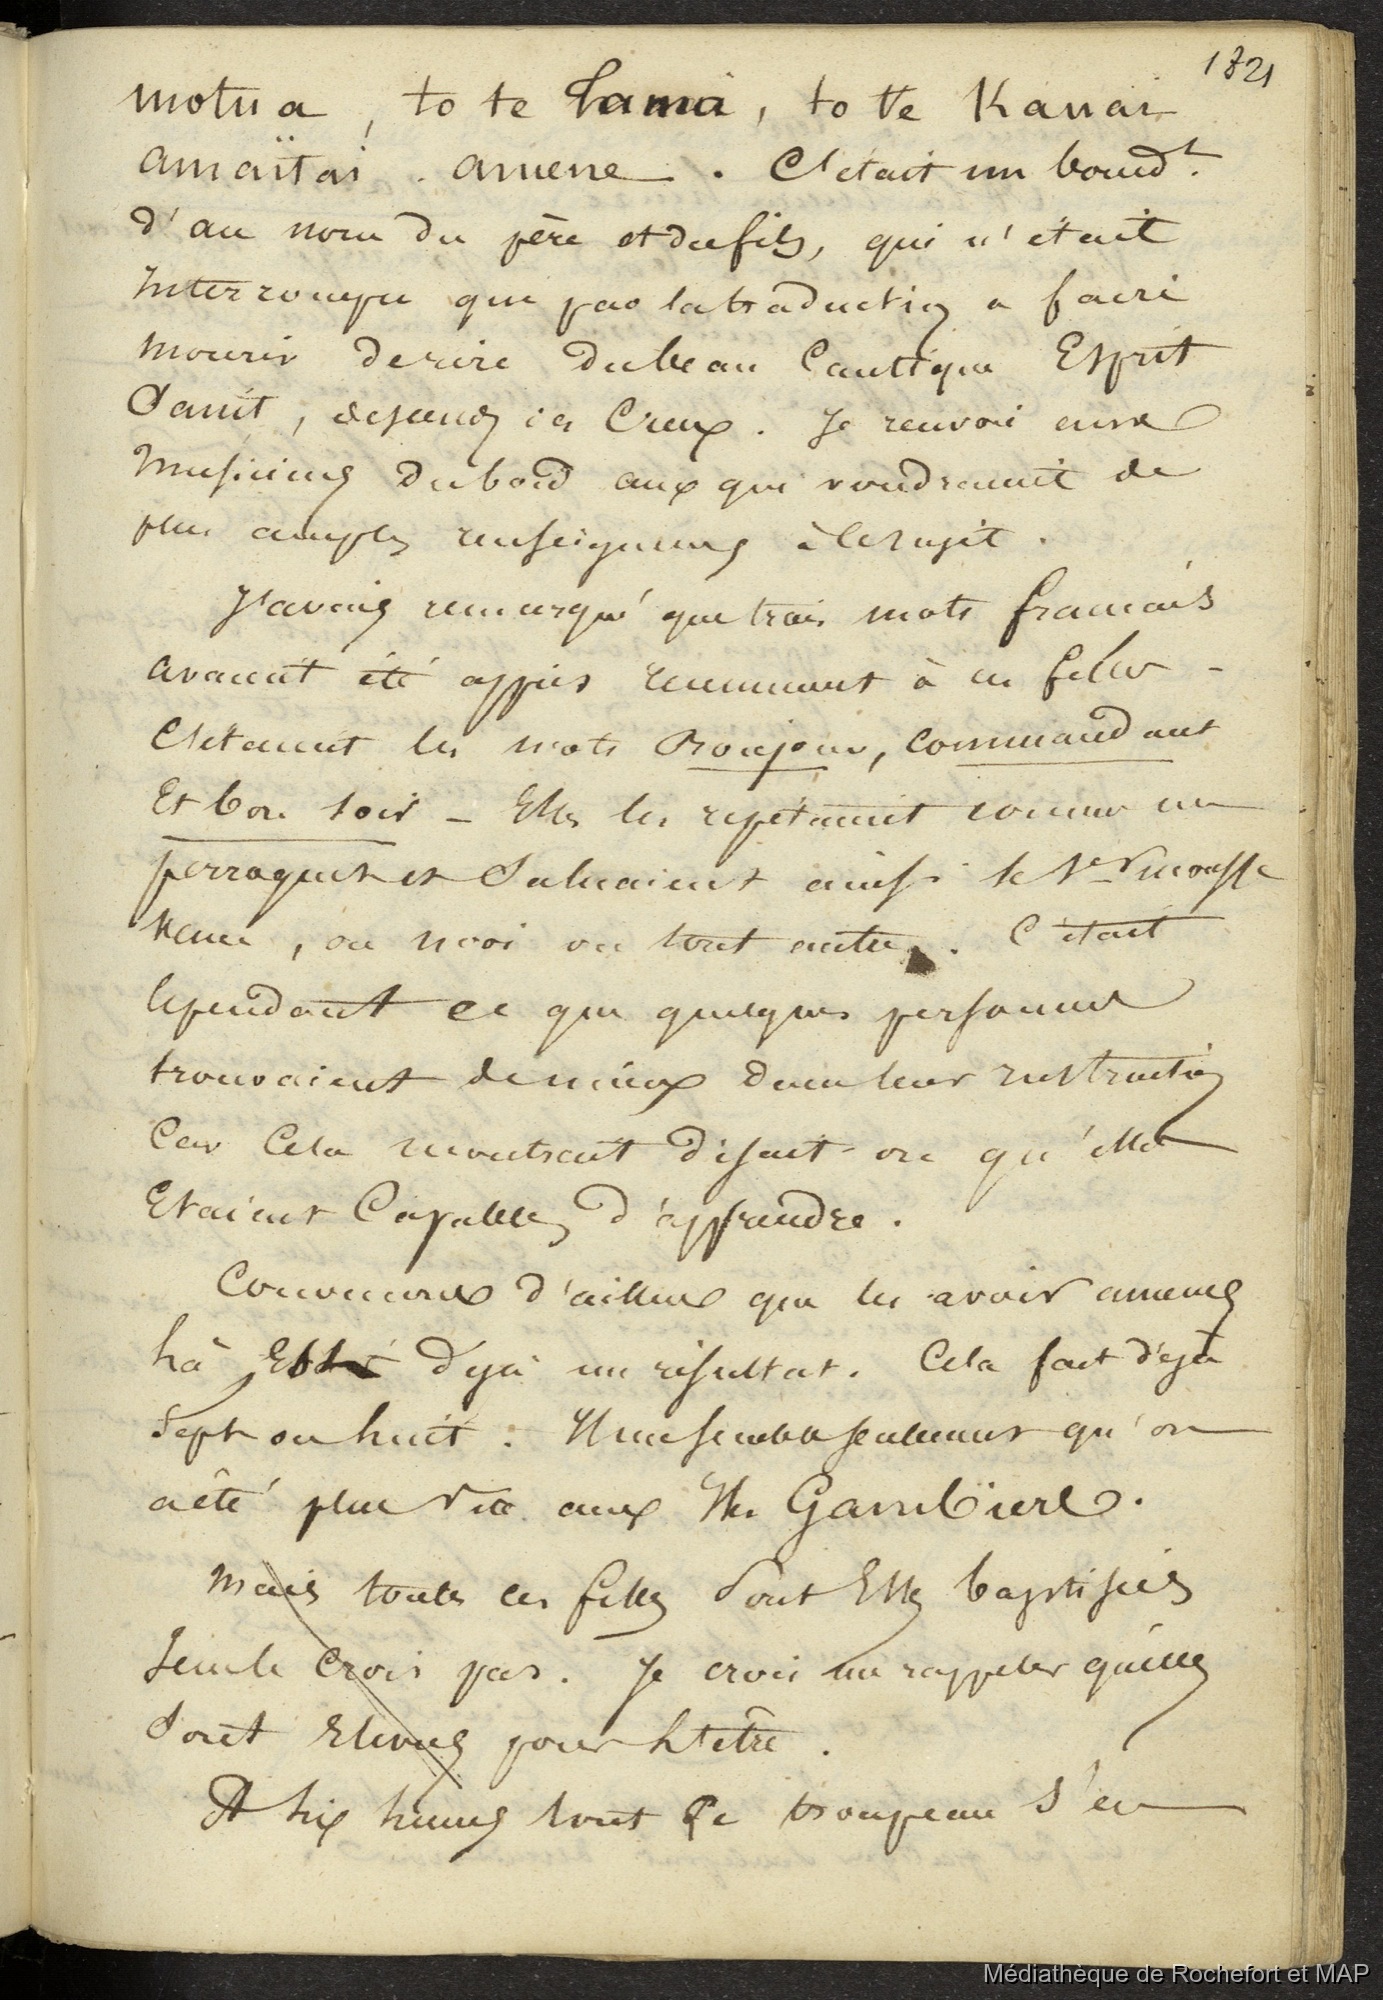 1821
motua, to te Tama, to te Kauai
amaïtai. amene. C'etait un bourdt.
d'au nom du père et du fils, qui n'etait
Interrompu que par la traduction a faire
mourir de rire du beau Cantique Esprit
Saint, descendez ici Creux. Je renvoie aux
musiciens du bord ceux qui voudraient de
plus amples renseignemens à ce sujet.
J'avais remarqué que trois mots francais
avaient été appris recemment à ces filles -
C'étaient les mots Bonjour, commandant
Et bon soir - Elles les repétaient comme un
perroquet et Saluaient ainsi le 1er mousse
venu, ou moi ou tout autre. C'était
Cependant ce que quelques personnes
trouvaient de mieux dans leur instruction
Car Cela montrait disait-on qu'elles
Etaient Capables d'apprendre.
Convenons d'ailleurs que les avoir amenés
là déjà un résultat. Cela fait déjà
Sept ou huit. Il me semble seulement qu'on
a été plus vite aux Iles Gambiers.
Mais toutes ces filles Sont Elles baptisées
Je ne le crois pas. Je crois me rappeler qu'elles
Sont Elevées pour l'être.
A six heures tout Ce troupeau s'en
Médiathèque de Rochefort et MAP